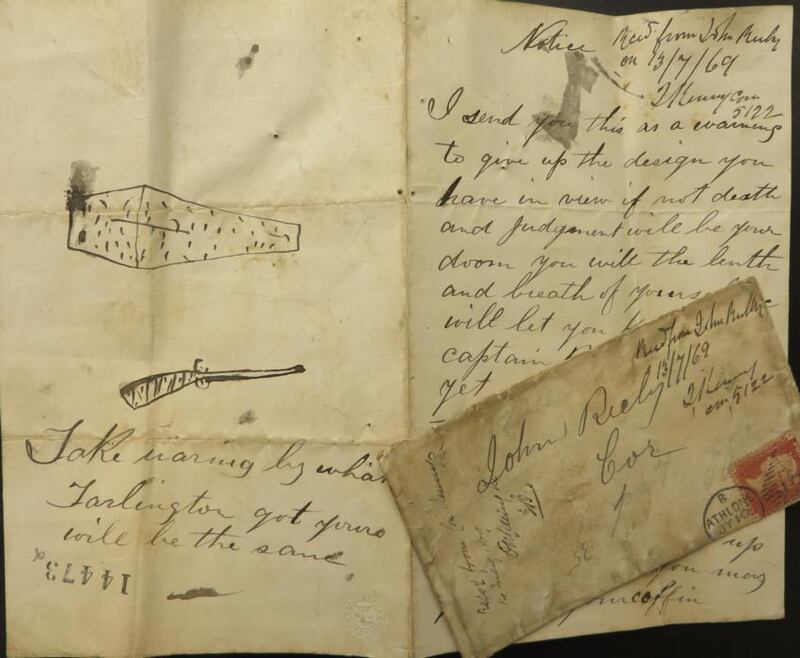 Take waring by what
Tarlington got yours
will be the same
14473
Notice
Recd from John Riely
on 13/7/69
5122
I send you this as a warning
to give up the design you
have in view if not death
and Judgment will be your
doom you will the lenth
and breath of yours
will let you
captain
yet
up
you may
your coffin
Recd from John Riely
13/7/69
5122
John Riely
Cor
8
ATHLONE
JY 10